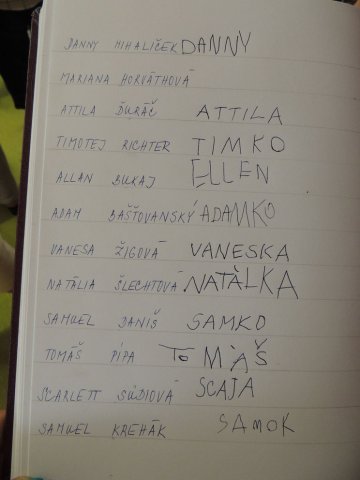 DANNY MIHALIČEK DANNY
MARIANA HORVÁTHOVÁ
ATTILA ĎURÁČ ATTILA
TIMOTEJ RICHTER TIMKO
ALLAN BUKAJ ELLEN
ADAM BAŠŤOVANSKÝ ADAMKO
VANESA ŽIGOVÁ VANESKA
NATÁLIA ŠLECHTOVÁ NATÀLKA
SAMUEL DANIŠ SAMKO
TOMÁŠ PÍPA TOMÀŠ
SCARLETT SÚDIOVÁ SCAJA
SAMUEL KREHÁK SAMOK